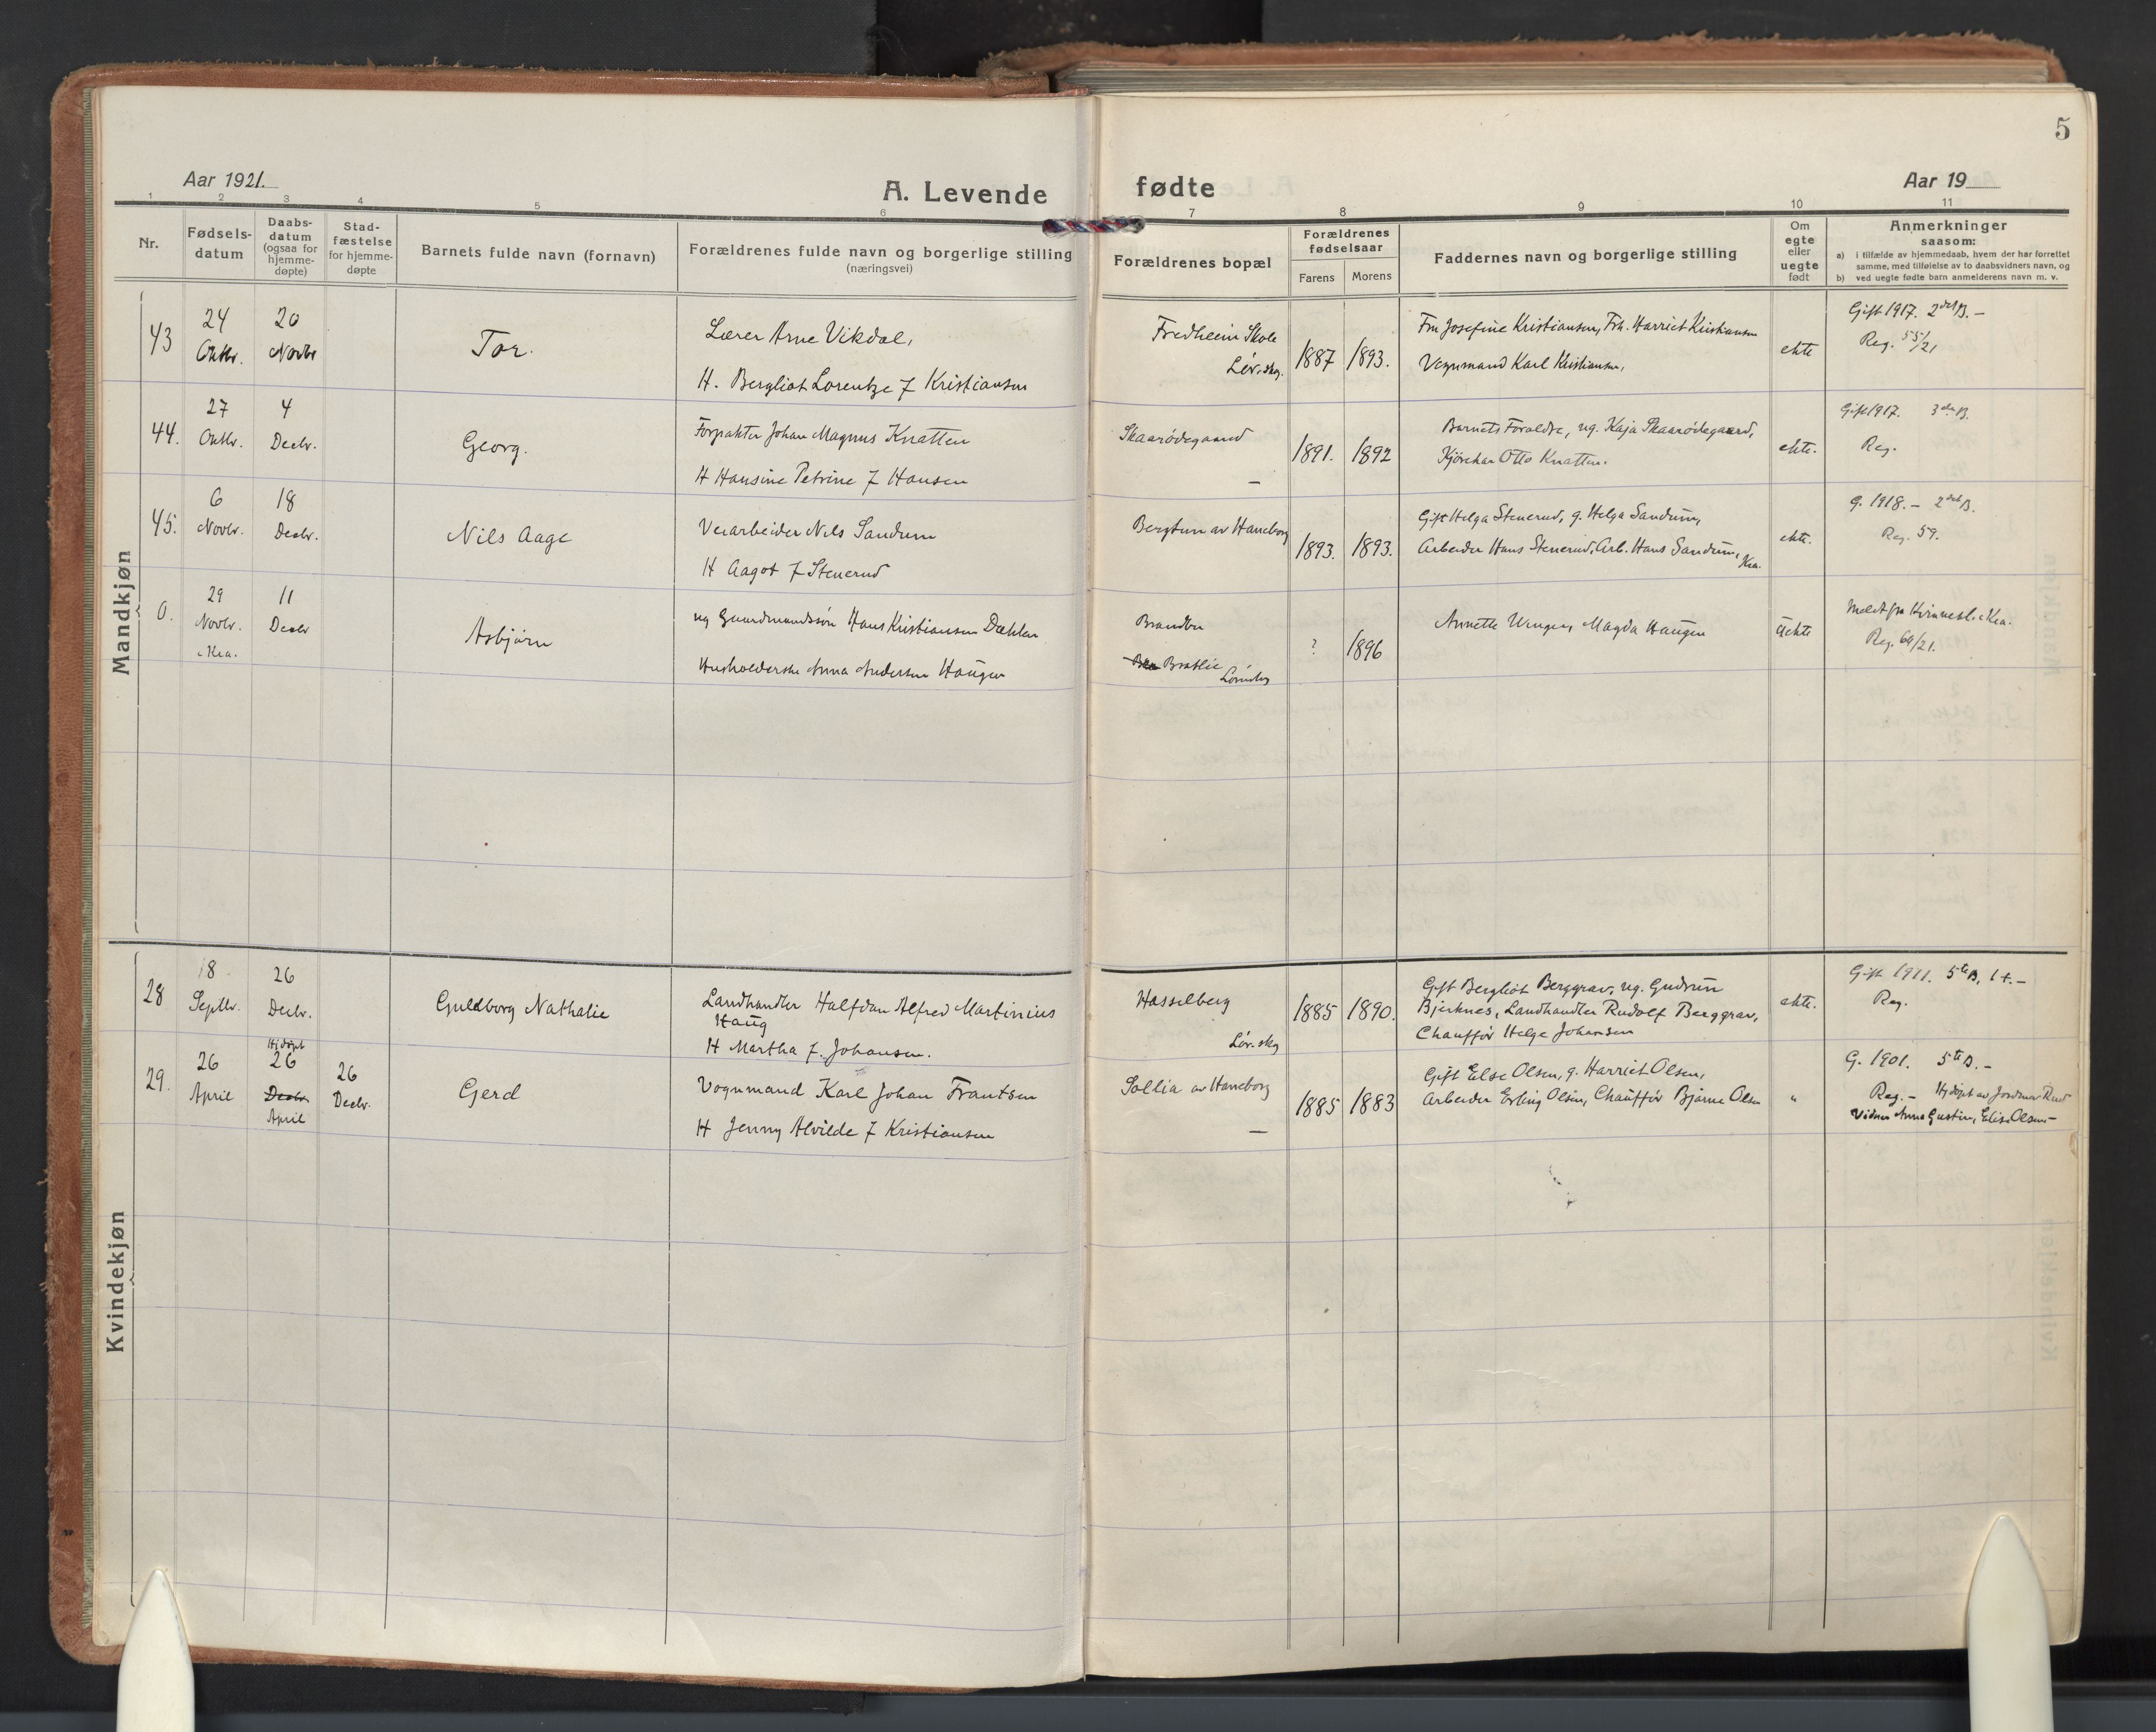 5
Aar 1921.
A. Levende fødte
Aar 19
1 2 3 4 5 6 7 8 9 10 11
Nr.
Fødsels-
datum
Daabs-
datum
(ogsaa for
hjemme-
døpte)
Stad-
fæstelse
for hjemme-
døpte
Barnets fulde navn (fornavn)
Forældrenes fulde navn og borgerlige stilling
(næringsvei)
Forældrenes bopæl
Forældrenes
fødselsaar
Farens Morens
Faddernes navn og borgerlige stilling
Om
egte
eller
uegte
født
Anmerkninger
saasom:
a) i tilfælde av hjemmedaab, hvem der har forrettet
samme, med tilføielse av to daabsvidners navn, og
b) ved uegte fødte barn anmelderens navn m. v.
Mandkjøn
43
24
Oktbr.
20
Novbr
Tor.
Lærer Arne Vikdal,
H. Bergliot Lorentze f Kristiansen
Fredheim Skole
Lør.skg.
1887 1893.
Fru Josefine Kristiansen, Frk. Harriet Kristiansen
Vognmand Karl Kristiansen,
ekte
Gift 1917. 2det B. –
Reg. 55/21
44.
27
Oktbr.
4
Decbr.
Georg.
Forpakter Johan Magnus Knatten
H Hansine Petrine f Hansen
Skaarødegaard
–
1891. 1892
Barnets Foreldre, ug. Kaja Skaarødegaard,
Kjørekar Otto Knatten.
ekte.
Gift 1917. 3die B.
Reg.
45.
6
Novbr.
18
Decbr.
Nils Aage
Veiarbeider Nils Sandum
H Aagot f Stenerud
Bergtun av Haneborg
1893. 1893.
Gift Helga Stenerud, g. Helga Sandum,
Arbeider Hans Stenerud, Arb. Hans Sandum, Kra.
ekte.
G. 1918. – 2det B.
Reg. 59.
0.
29
Novbr.
i Kra.
11
Decbr
Asbjørn
ug Gaardmandssøn Hans Kristiansen Dæhlen
Husholderske Anna Andersen Haugen
Brandbu
Bratlie
Lørenskg
? 1896
Annette Wangen, Magda Haugen
Uekte
Meldt fra Kvinnekl. i Kra.
Reg. 60/21.
Kvindekjøn
28
18
Septbr.
26
Decbr.
Guldborg Nathalie
Landhandler Halfdan Alfred Martinius
Haug
H Martha f. Johansen.
Hasselberg
Lør.skg
1885 1890.
Gift Bergliot Berggrav, ug. Gudrun
Bjerknes, Landhandler Rudolf Berggrav,
Chauffør Helge Johansen
ekte.
Gift 1911. 5te B, 1 +. –
Reg.
29.
26
April
Hj.døpt
26
Decbr
April
26
Decbr.
Gerd
Vognmand Karl Johan Frantsen
H Jenny Alvilde f Kristiansen
Sollia av Haneborg
–
1885 1883
Gift Else Olsen, g. Harriet Olsen,
Arbeider Erling Olsen, Chauffør Bjarne Olsen
"
G. 1901. 5te B. –
Reg. – Hj.døpt av Jordmor Rud
Vidner Anna Gustin, Elise Olsen –